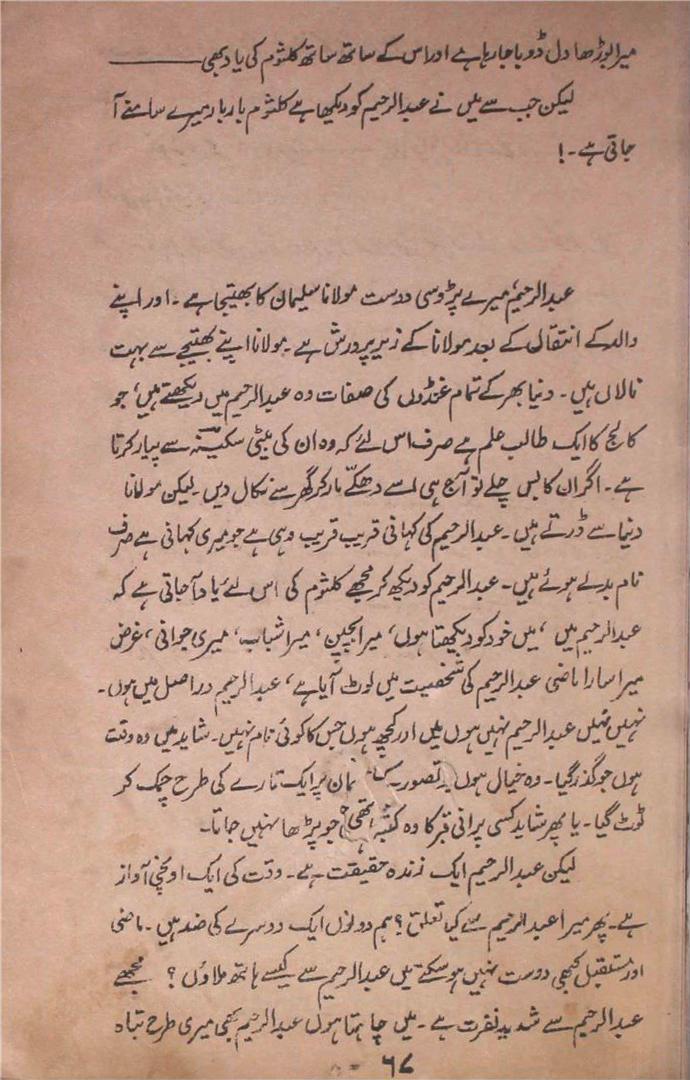 میرا بوڑھا دل ڈوبا جا رہا ہے اور اس کے ساتھ ساتھ کلثوم کی یاد بھی ــــــــ
لیکن جب سے میں نے عبدالرحیم کو دیکھا ہے کلثوم بار بار میرے سامنے آ
جاتی ہے۔!
عبدالرحیم میرے پڑوسی دوست مولانا سلیمان کا بھتیجا ہے۔ اور اپنے
والد کے انتقال کے بعد مولانا کے زیر پرورش ہے۔ مولانا اپنے بھتیجے سے بہت
نالاں ہیں۔ دنیا بھر کے تمام غنڈوں کی صفات وہ عبدالرحیم میں دیکھتے ہیں، جو
کالج کا ایک طالب علم ہے صرف اس لئے کہ وہ ان کی بیٹی سکینہ سے پیار کرتا
ہے۔ اگر ان کا بس چلے تو آج ہی اسے دھکے مار کر گھر سے نکال دیں۔ لیکن مولانا
دنیا سے ڈرتے ہیں۔ عبدالرحیم کی کہانی قریب قریب وہی ہے جو میری کہانی ہے صرف
نام بدلے ہوئے ہیں۔ عبدالرحیم کو دیکھ کر مجھے کلثوم کی اس لئے یاد آ جاتی ہے کہ
عبدالرحیم میں، میں خود کو دیکھتا ہوں، میرا بچپن، میرا شباب، میری جوانی، غرض
میرا سارا ماضی عبدالرحیم کی شخصیت میں لوٹ آیا ہے، عبدالرحیم دراصل میں ہوں۔
نہیں نہیں عبدالرحیم نہیں ہوں میں اور کچھ ہوں جس کا کوئی نام نہیں۔ شاید میں وہ وقت
ہوں جو گذر گیا۔ وہ خیال ہوں جو تصور کے مان پر ایک تارے کی طرح چمک کر
ٹوٹ گیا۔ یا پھر شاید کسی پرانی قبر کا وہ کتبہ جو پڑھا نہیں جاتا۔
لیکن عبدالرحیم ایک زندہ حقیقت ہے۔ وقت کی ایک اونچی آواز
ہے۔ پھر میرا عبدالرحیم سے کیا تعلق؟ ہم دونوں ایک دوسرے کی ضد ہیں۔ ماضی
اور مستقبل کبھی دوست نہیں ہو سکتے میں عبدالرحیم سے کیسے ہاتھ ملاؤں؟ مجھے
عبدالرحیم سے شدید نفرت ہے۔ میں چاہتا ہوں عبدالرحیم بھی میری طرح تباہ
۶۷